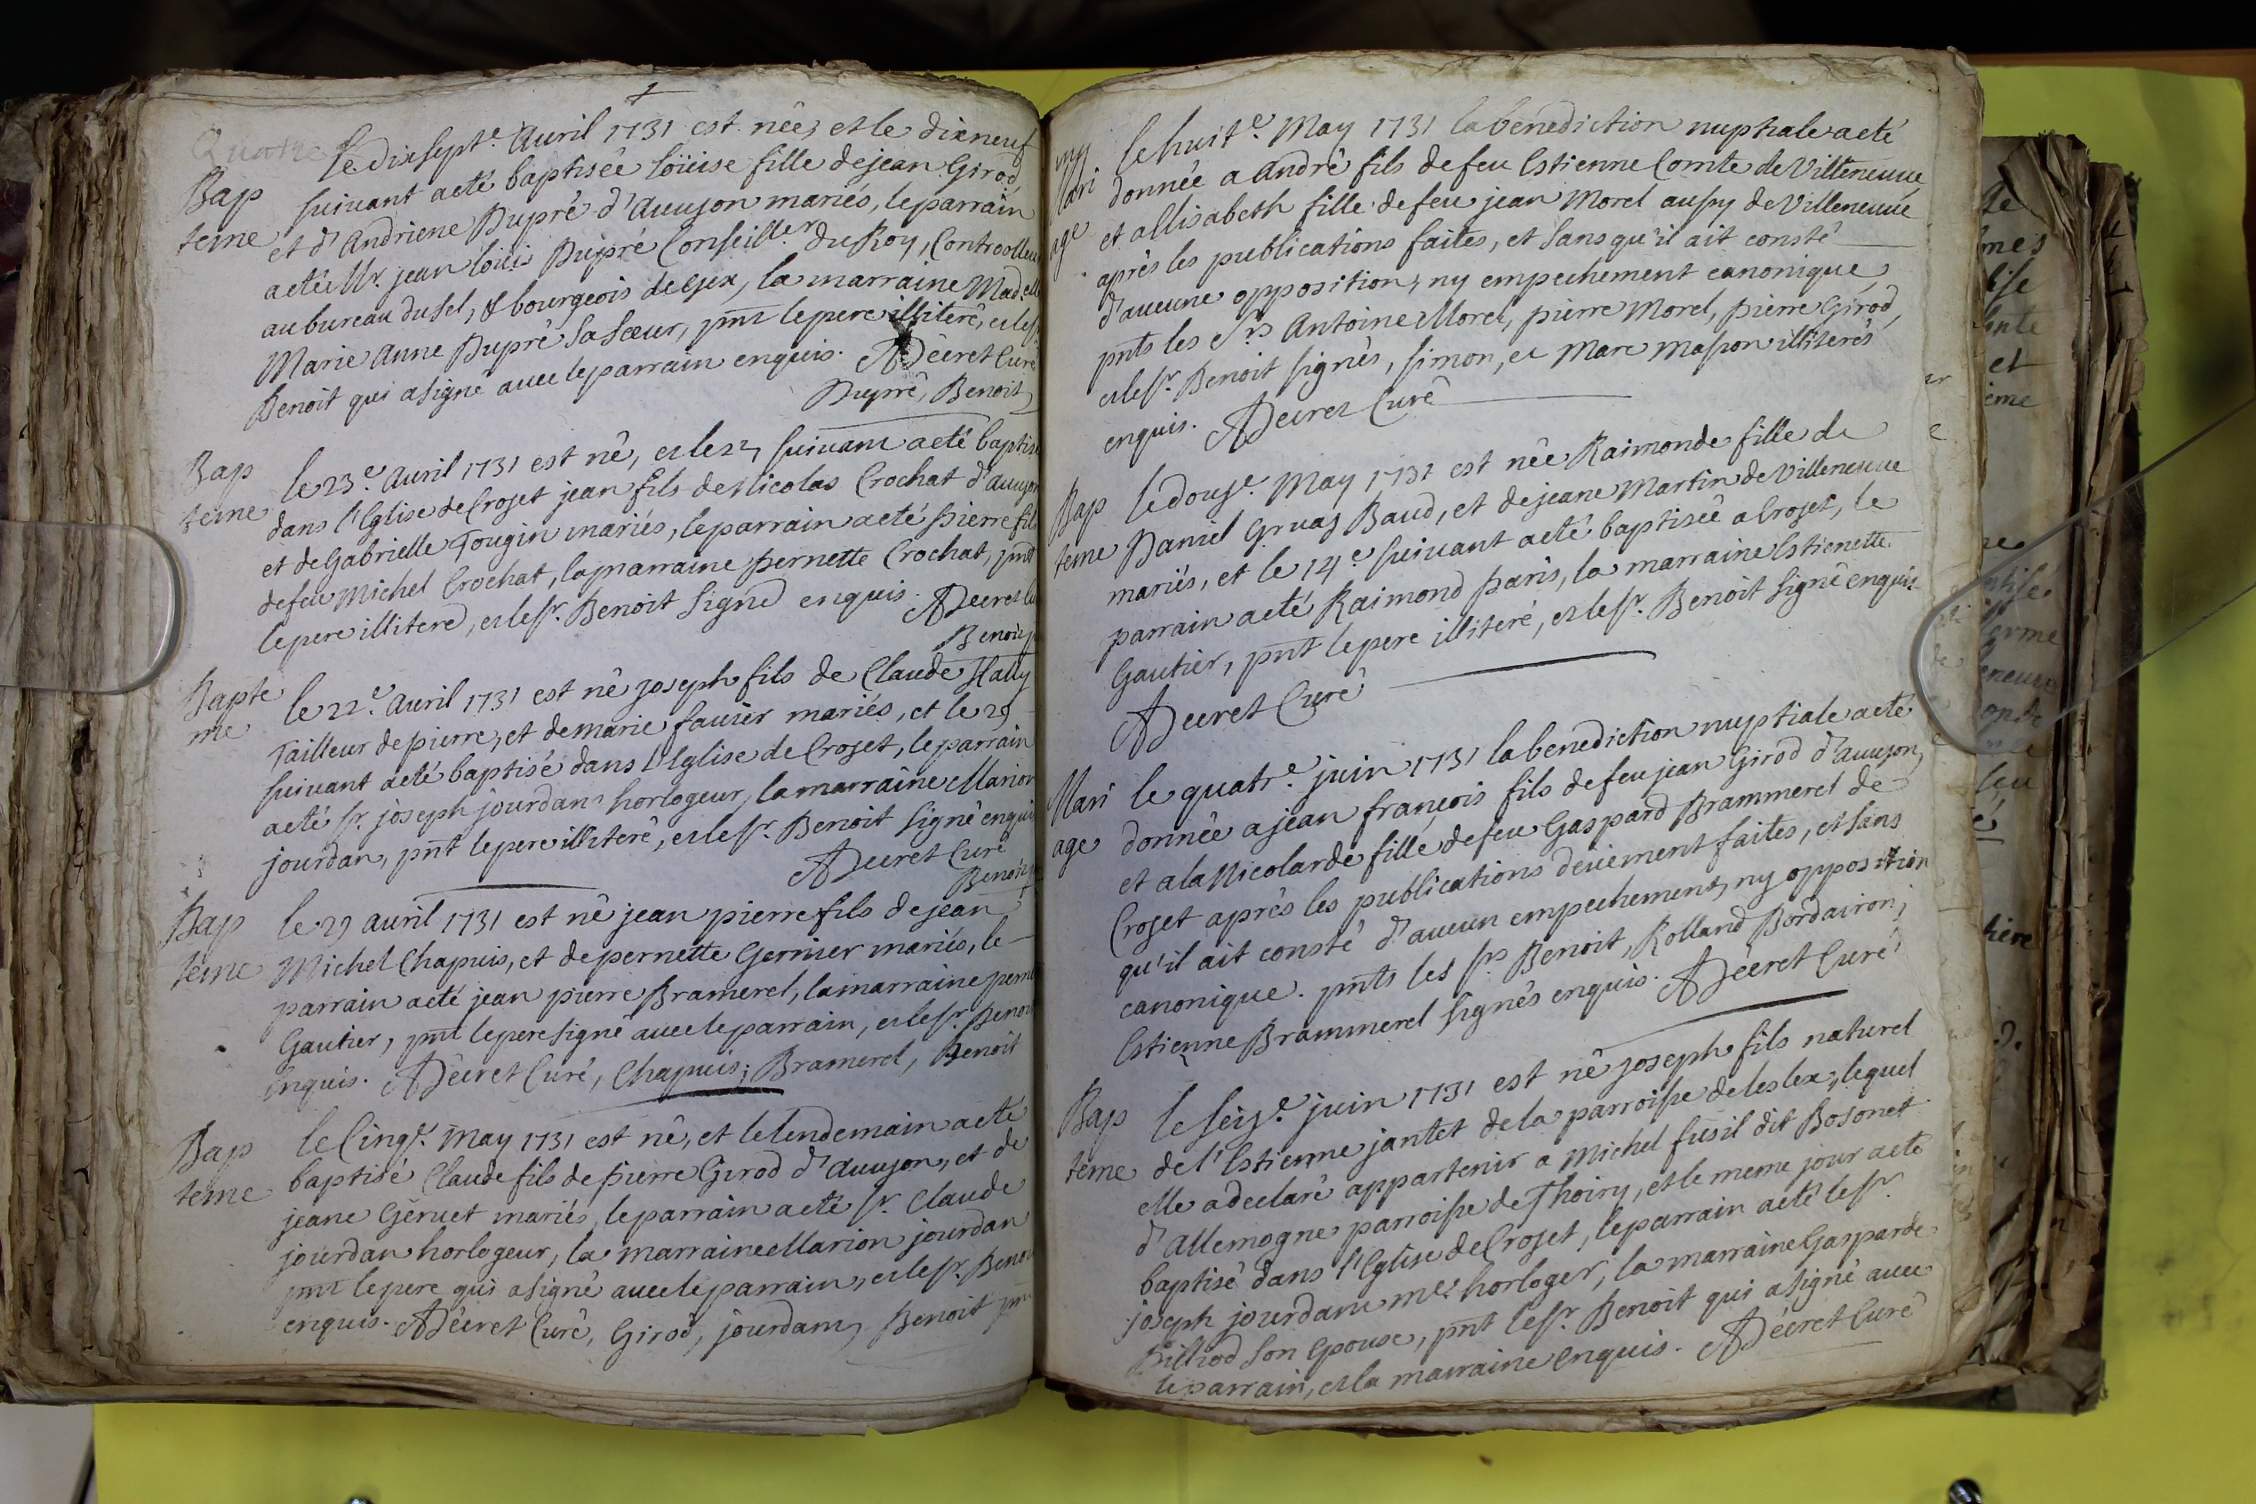 Bap
teme
le dixsept.e Auril 1731 est née, et le dixneuf
suiuant a eté baptisée loüise fille de jean Girod
et d'Andriene Dupré d'Auuson mariés, le parrain
a eté Mr. jean loüis Dupré Conseill.er du Roy, Controolleur
au bureau du sel, & bourgeois de Gex, la marraine Mad.elle
Marie Anne Dupré sa sœur, pnt le pere illiteré, et le sr
Benoit qui a signé auec le parrain enquis. ADécret Curé
Dupré, Benoit
Bap
teme
le 23.e Auril 1731 est né, et le 27 suiuant a eté baptisé
dans l'Eglise de Crozet jean fils de Nicolas Crochat d'Auuson
et de Gabrielle Tougin mariés, le parrain a eté pierre fils
de feu Michel Crochat, la marraine pernette Crochat, pnt
le pere illiteré, et le sr. Benoit signé enquis. ADecret Cu
Benoit
Bapte
me
le 22.e Auril 1731 est né joseph fils de Claude Hally
Tailleur de pierre, et de marie fauier mariés, et le 29
suiuant a eté baptisé dans l'Eglise de Crozet, le parrain
a eté sr. joseph jourdan horlogeur, la marraine Marion
jourdan, pnt le pere illiteré, et le sr. Benoit signé enquis
ADecret Curé
Benoit
Bap
teme
le 29 auril 1731 est né jean pierre fils de jean
Michel Chapuis, et de pernette Gernier mariés, le
parrain a eté jean pierre Bramerel, la marraine pern
Gautier, pnt le pere signé auec le parrain, et le sr. Benoi
enquis. ADécret Curé, Chapuis, Bramerel, Benoit
Bap
teme
le Cinq.e May 1731 est né, et le lendemain a eté
baptisé Claude fils de pierre Girod d'Auuson, et de
jeane Geruet mariés, le parrain a eté sr. Claude
jourdan horlogeur, la marraine Marion jourdan
pnt le pere qui a signé auec le parrain, et le sr. Benoi
enquis. ADécret Curé, Girod, jourdam, Benoit
Mari
age
le huit.e May 1731 la benediction nuptiale a eté
donnée a André fils de feu Estienne Comte de Villeneuue
et a Elisabeth fille de feu jean Morel aussy de Villeneuue
après les publications faites, et sans qu'il ait consté
d'aucune opposition, ny empechement canonique
pnts les Srs Antoine Morel, pierre Morel, pierre Girod,
et le sr. Benoit signés, simon, et Marc Masson illiterés
enquis. ADecret Curé
Bap
teme
le douze May 1731 est née Raimonde fille de
Daniel Gruaz Baud, et de jeane Martin de Villeneuue
mariés, et le 14.e suiuant a eté baptisée a Crozet, le
parrain a eté Raimond paris, la marraine Estienette
Gautier, pnt le pere illiteré, et le sr. Benoit signé enquis
ADecret Curé
Mari
age
le quatr.e juin 1731 la benediction nuptiale a eté
donnée a jean françois fils de feu jean Girod d'Auuson,
et a la Nicolarde fille de feu Gaspard Brammerel de
Crozet après les publications deüement faites, et sans
qu'il ait consté d'aucun empechement, ny opposition
canonique. pnts les srs Benoit, Rolland Bordairon,
Estienne Brammerel signés enquis. ADécret Curé
Bap
teme
le seiz.e juin 1731 est né joseph fils naturel
de l'Estienne jantet de la parroisse de leslex, lequel
elle a declaré appartenir a Michel fusil dit Bosonet
d'Allemogne parroisse de Thoiry, et le meme jour a eté
baptisé dans l'Eglise de Crozet, le parrain a eté le sr.
joseph jourdam me. horloger, la marraine Gasparde
son epouse, pnt le sr. Benoit qui a signé auec
le parrain, et la marraine enquis. ADécret Curé